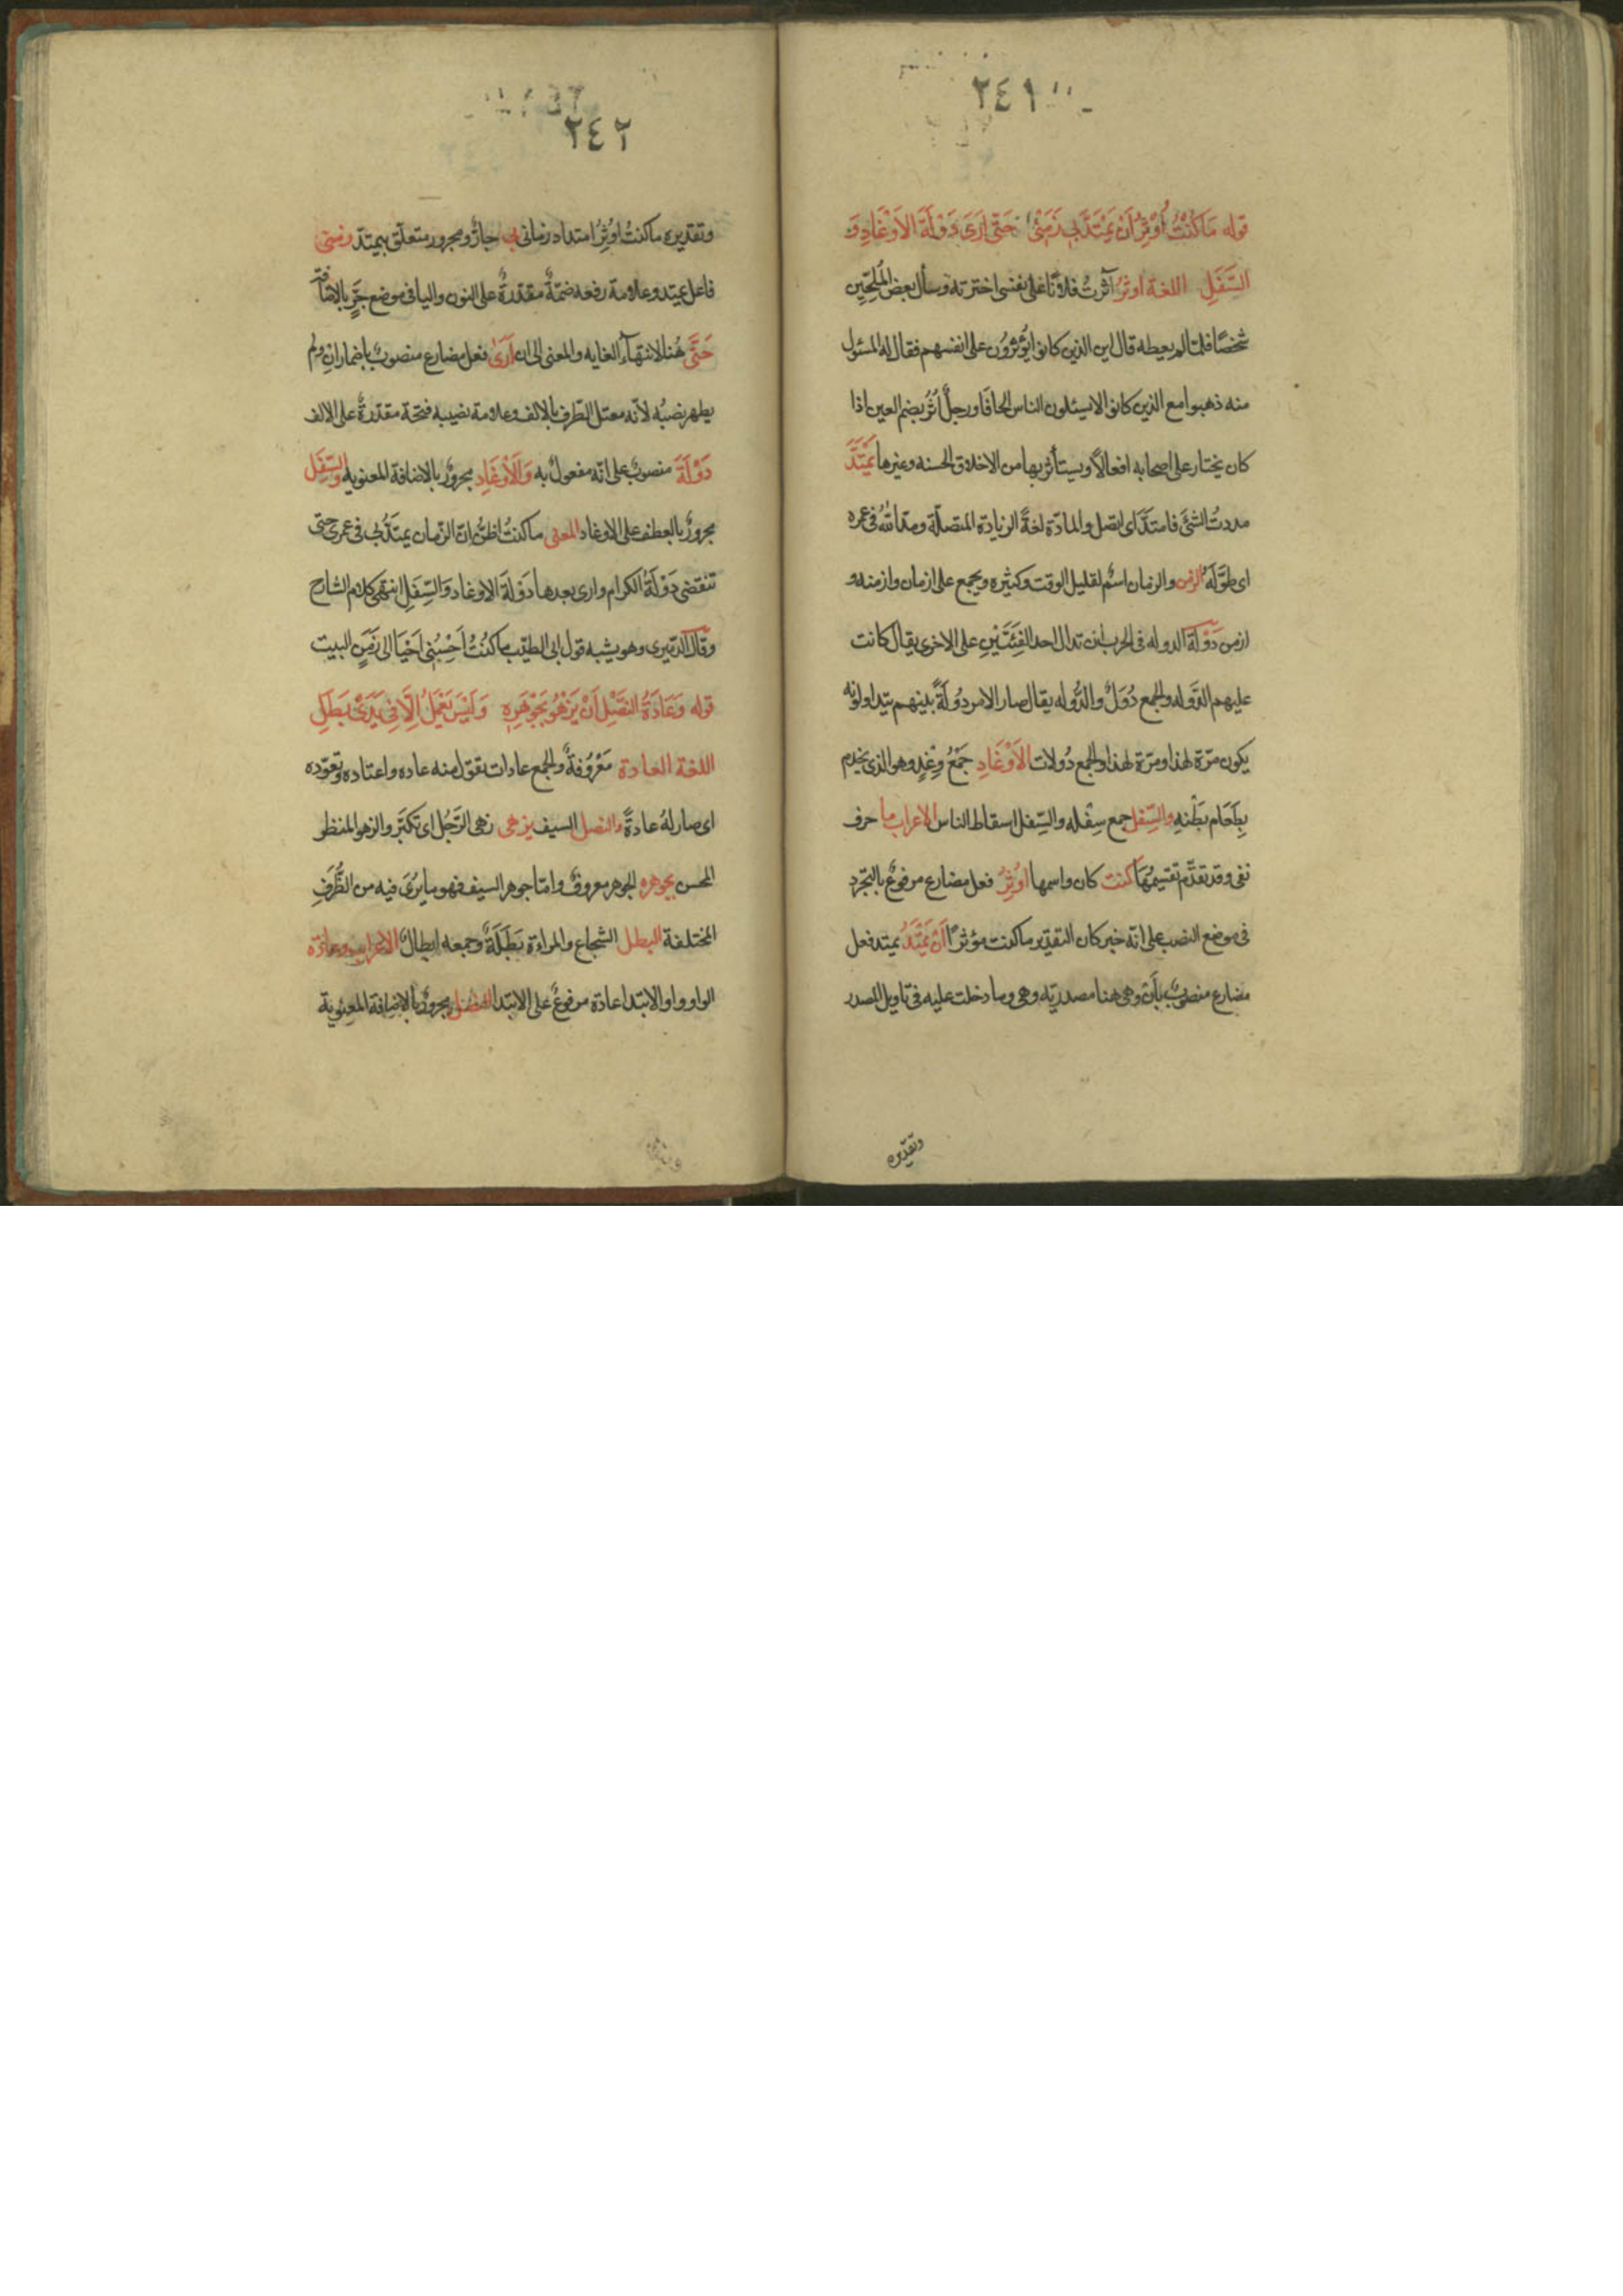 ٢٤١
قوله مَا كُنْتُ أُوْثِرُ أَنْ يَمْتَدَّ بِي زَمَنِيْ حَتَّى أَرَى دَوْلَةَ الأَوْغَادِ وَ
السَّفَلِ اللغة اوثرُ آثرتُ فلانًا على نفسي اخترته وسأل بعض المُلِحّين
شخصًا فلمّا لم يعطه قال اين الذين كانوا يُؤثِرُون على انفسهم فقال له المسئول
منه ذهبوا مع الذين كانوا لا يسئلون الناس الحافا ورجلٌ اَثُرٌ بضم العين اذا
كان يختار على اصحابه افعالاً ويستأثر بها من الاخلاق الحسنه وغيرها يَمْتَدَّ
مددتُ الشئَ فامتدَّ اى اتصل والمادّة لغةً الزيادة المتصلّة ومدّ اللهُ فى عمره
اى طوَّلَهُ الزمن والزمان اسمٌ لقليل الوقت وكثيره ويجمع على ازمان وازمنه و
ازمن دَوْلَة الدوله فى الحرب ان تدال احد الفِئَتَيْنِ على الاخرى يقال كانت
عليهم الدَّوله والجمع دُوَلٌ والدُّوله يقال صار الامر دُولَةً بينهم يتداولونه
يكون مرّة لهذا ومرّة لهذا والجمع دُولات الاَوْغَادِ جَمْعُ وَغْدٍ وهو الذى يخدم
بِطَعَام بَطْنِهِ والسِّفل جمع سِفْله والسِّفل اسقاط الناس الاعراب ما حرف
نفى وقد تقدّم تقسيمُهَا كنت كان واسمها اوُثِرُ فعل مضارع مرفوعٌ بالتجّرد
فى موضع النصب على انه خبر كان التقدير ما كنت مؤثرًا أَنْ يَمْتَدَّ يمتد فعل
مضارع منصوبٌ بأَن وهى هنا مصدريّه وهى وما دخلت عليه فى تاويل المصدر
وتقديره
٢٤٢
وتقديره ما كنتُ اوُثِرُ امتداد زمانى بى جارٌّ ومجرور متعلّق بيمتدّ زمنى
فاعل يمتد وعلامة رفعه ضمّةٌ مقدّرةٌ على النون واليا فى موضع جَرٍّ بالاضافة
حَتَّى هُنا لانتهآء الغايه والمعنى الى ان أَرَىٰ فعل مضارع منصوبٌ باضمار ان ولم
يظهر نصبُه لانّه معتل الطرف بالالف وعلامة نصبه فتحة مقدّرةٌ على الالف
دَوْلَةَ منصوبٌ على انّه مفعولٌ به وَالأَوْغَادِ مجرورٌ بالاضافة المعنويه والسِّفَلِ
مجرورٌ بالعطف على الاوغاد المعنى ما كنتُ اظنُّ انّ الزّمان يمتدُّ بى فى عمرى حتى
تنقضى دَوْلَةُ الكرام وارى بعدها دَوْلَةَ الاوغاد وَالسِّفَلِ انتهى كلام الشارح
وقال الدّميرى وهو يشبه قول ابى الطيّب ما كنُتُ اَحْسِبُنى اَحْيَا الى زَمَنٍ البيت
قوله وَعَادَةُ النَصْلِ أَنْ يَزْهُو بِجَوْهَرِهِ وَلَيْسَ يَعْمَلُ اِلَّا فِي يَدَيْ بَطَلِ
اللغة العادة مَعْرُوفةٌ والجمع عادات تقول منه عاده واعتاده وتعوّده
اى صار لهُ عادةً والنصل السيف يزهى زهى الرّجُل اى تكبّر والزهو المنظر
الحسن بجوهره الجوهر معروفٌ وامّا جوهر السيف فهو ما يرُىَ فيه من الطُّرَفِ
المختلفة البطل الشجاع والمراءة بَطَلَةٌ وجمعه ابطالٌ الاعراب وعادة
الواو واو الابتدا عادة مرفوعٌ على الابتدا النصل مجرورٌ بالاضافة المعنوية